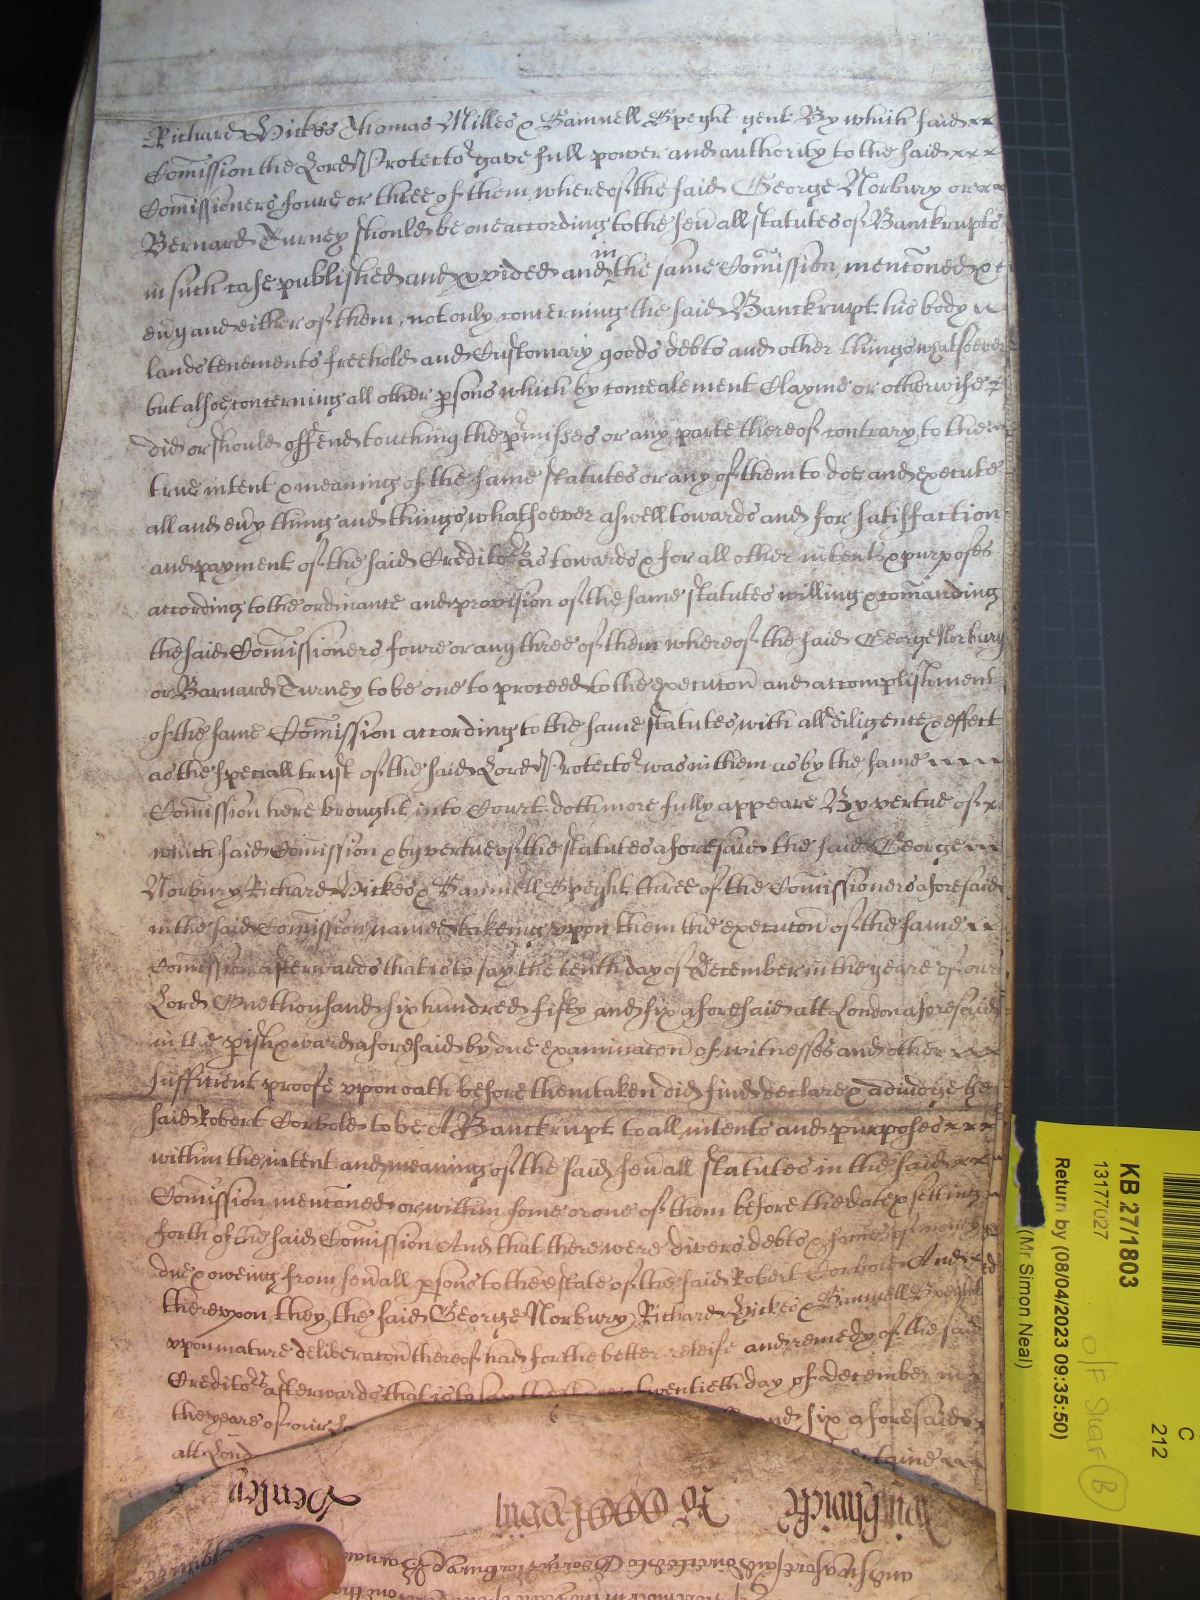 Richard Hickes Thomas Milles & Samuell Speght gent By which said
Comission the Lord Protector gave full power and authority to the said
Comissioners foure or three of them whereof the said George Norbury or
Bernard Turney should be one according to the sevall statutes of Banckrupts
in such case published and pvided and in the same Comission mentoned
evy and either of them not only concerning the said Banckrupt his body
lands tenements freehold and Customary goods debts and other things whatsoever
but alsoe concerning all other psons which by concealement Clayme or otherwise
did or should offend touching the pmisses or any parte thereof contrary to the
true intent & meaning of the same statutes or any of them to doe and execute
all and evy thing and things whatsoever aswell towards and for satisfaction
and payment of the said Creditors as towards & for all other intents & purposes
according to the ordinance and provision of the same statutes willing & comanding
the said Comissioners foure or any three of them whereof the said George Norbury
or Barnard Turney to be one to proceed to the execucon and accomplishment
of the same Comission according to the same statutes with all diligence & effect
as the speciall trust of the said Lord Protector was in them as by the same
Comission here brought into Court doth more fully appeare By vertue of
which said Comission & by vertue of the statutes aforesaid the said George
Norbury Richard Hickes & Samuell Speght three of the Comissioners aforesaid
in the said Comission named takeing vpon them the execucon of the same
Comission afterwards that is to say the tenth day of December in the yeare of our
Lord One thousand six hundred fifty and six aforesaid att London aforesaid
in the pish & ward aforesaid by due examinacon of witnesses and other
sufficient proofe vpon oath before them taken did find declare & adiudge the
said Robert Corbold to be A Banckrupt to all intents and purposes
within the intent and meaning of the said sevall statutes in the said
Comission mentoned or within some or one of them before the date & setting
forth of the said Comission And that there were divers debts & sumes of money
due & oweing from sevall psons to the estate of the said Robert Corbold And
therevpon they the said George Norbury Richard Hickes & Samuell Speght
vpon mature deliberacon thereof had for the better releife and remedy of the said
Creditors afterwards that is to say twentieth day of december in
the yeare of our and six aforesaid
att Lond
Henley
Warrwicke
KB 27/1803
13177027
Return by (08/04/2023 09:35:50)
(Mr Simon Neal)
C
212
B